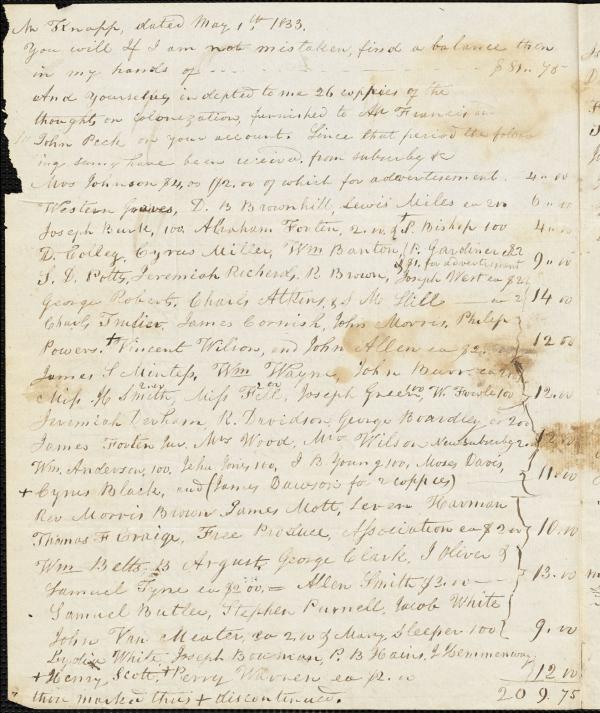 Mr Knapp, dated May 1st 1833.
You will If I am not mistaken, find a balance then
in my hands of - - - - - - - - $81.. 75
And yourselves indepted to me 26 coppies of the
thoughts on colonization, furnished to Mr Francis or
John Peck on your account. Since that period the follow
ing sums have been receivd. from subscribs &c
Mrs Johnson $4,00 ($2.00 of which for advertisement. 4..00
Western Graves, D. B Brownhill, Lewis Miles ea 200 6..00
Joseph Burk, 100, Abraham Forten, 2.00 & †S. Bishop 100 4..00
D. Colley, Cyrus Miller, Wm Banton, P. Gardiner $2
& $1. for advertisement 9..00
S. D. Potts, Jeremiah Richerds, R. Brown, Joseph West ea $2
George Roberts, Charls Atkins, & Mr Still — ea 2 } 14.00
Charls Trusier, James Cornish, John Morris, Philip
Powers. †Vincent Wilson, and John Allen ea $2. } 12.00
James S Mintess, Wm Wayne, John Burr. ea
Miss H Smith, 2.00 Miss Fell, 2.00 Joseph Green, 100 W. Fowle 100 } 12.00
Jeremiah Durham, R. Davidson, George Boardley ea 200
James Forten Jur, Mrs Wood, Mrs Wilson New Subscribs 2. 12.00
Wm. Anderson, 100, John Jones, 100, J B Young 100, Moses Davis,
+ Cyrus Black, and (James Dawson for 2 coppies) } 11.00
Rev Morris Brown, James Mott, Leven Harman
Thomas F Craige, Free Produce, Association ea $2 00 } 10.00
Wm Betts, B Argust, George Clark, J Oliver &
Samuel Tyne ea $2 00, = Allen Smith $3.00 — } 13.00
Samuel Butler, Stephen Purnell, Jacob White
John Van Meater, ea 2.00 & Mary Sleeper 100 } 9.00
Lydia White, Joseph Bowman, P. B Hain, J Hemmenway
+ Henry Scott, † Perry Warner ea $2.00 12 00
thos marked thus + discontinued. 20 9.75